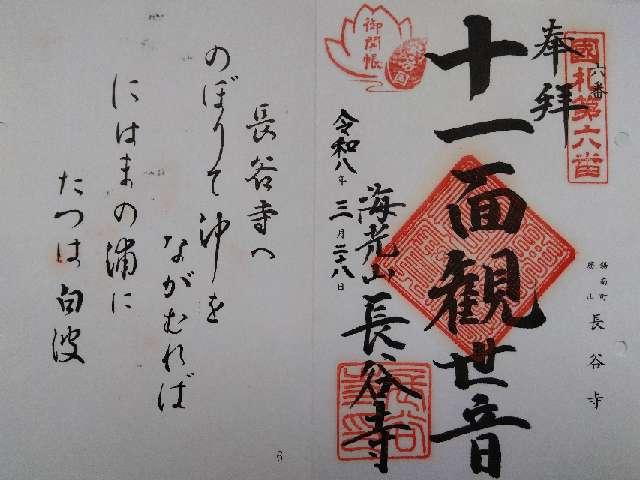 奉拝
六番
國札第六番
十一面観世音
御開帳
令和八年三月二十八日
海光山長谷寺
長谷寺
長谷寺へ
のぼりて沖を
ながむれば
にはまの浦に
たつは白波
6